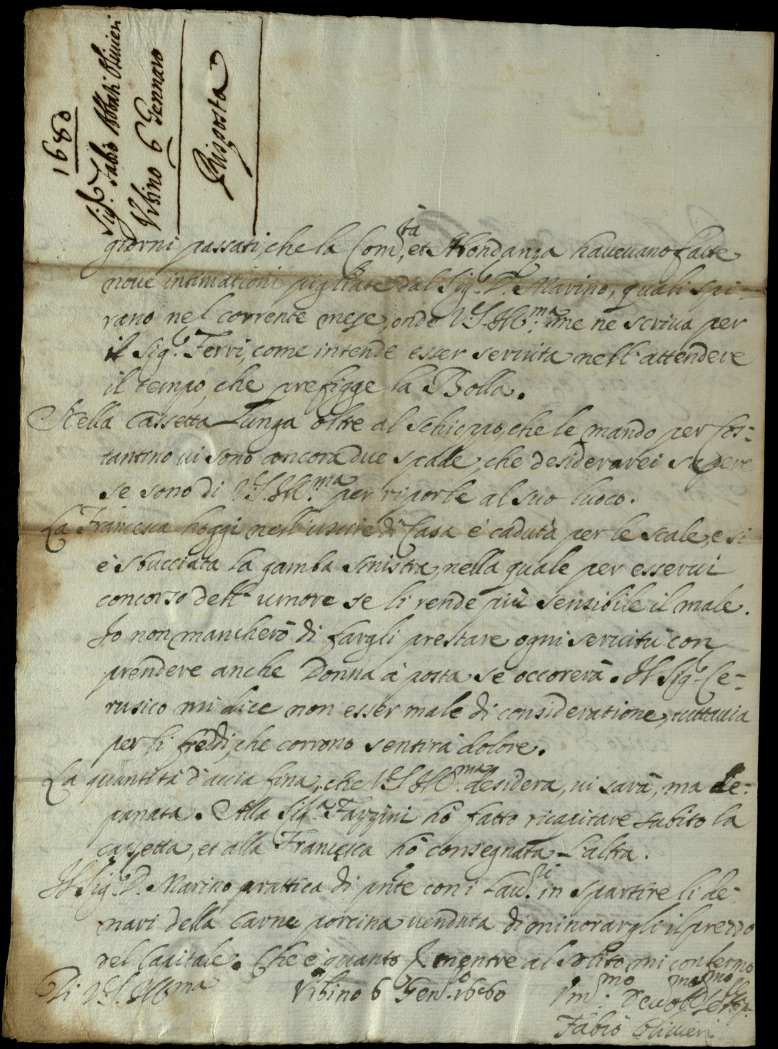 1680
Sig.r Fabio Abbati Olivieri
Urbino 6 Gennaro
Risposta
giorni passati, che la Com.tà, et Abondanza havevano fatte
nove intimationi pigliate dal Sig.r D. Marino, quali spi-
rano nel corrente mese, onde V.S. Ill.ma me ne scriva per
il Sig.r Ferri, come intende esser servita nell'attendere
il tempo, che prefigge la Bolla.
Nella Cassetta lunga oltre al Schioppo, che le mando per Cos-
tantino vi sono ancora due spalle, che desiderarei sapere
se sono di V.S. Ill.ma per riporle al suo luoco.
La Francesca hoggi nell'uscire di Casa è caduta per le scale, e si
è sbucciata la gamba sinistra, nella quale per esservi
concorso dell'umore se li rende più sensibile il male.
Io non mancherò di fargli prestare ogni servitù con
prendere anche Donna à posta se occorerà. Il Sig.r Ce-
rusico mi dice non esser male di consideratione, tuttavia
per li freddi, che corrono sentirà dolore.
La quantità d'accia fina, che V.S. Ill.ma desidera, vi sarà, ma de-
panata. Alla Sig.ra Fazzini hò fatto ricapitare subito la
cassetta, et alla Francesca hò consegnata l'altra.
Il Sig.r D. Marino prattica di pnte con i Lau.ri in spartire li de-
nari della Carne porcina venduta di minorargli il prezzo
nel Capitale. Che è quanto mentre al solito mi confermo
Di V.S. Ill.ma
Urbino 6 Gen.o 1680
Dev.mo
Fabio Olivieri